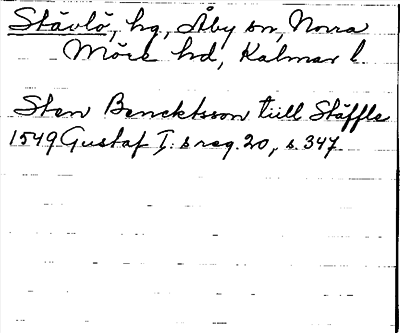 Stävlö, hg, Åby sn, Norra
Möre hd, Kalmar l.
Sten Bencktsson till Stäffle
1549 Gustaf I:s reg. 20, s. 347